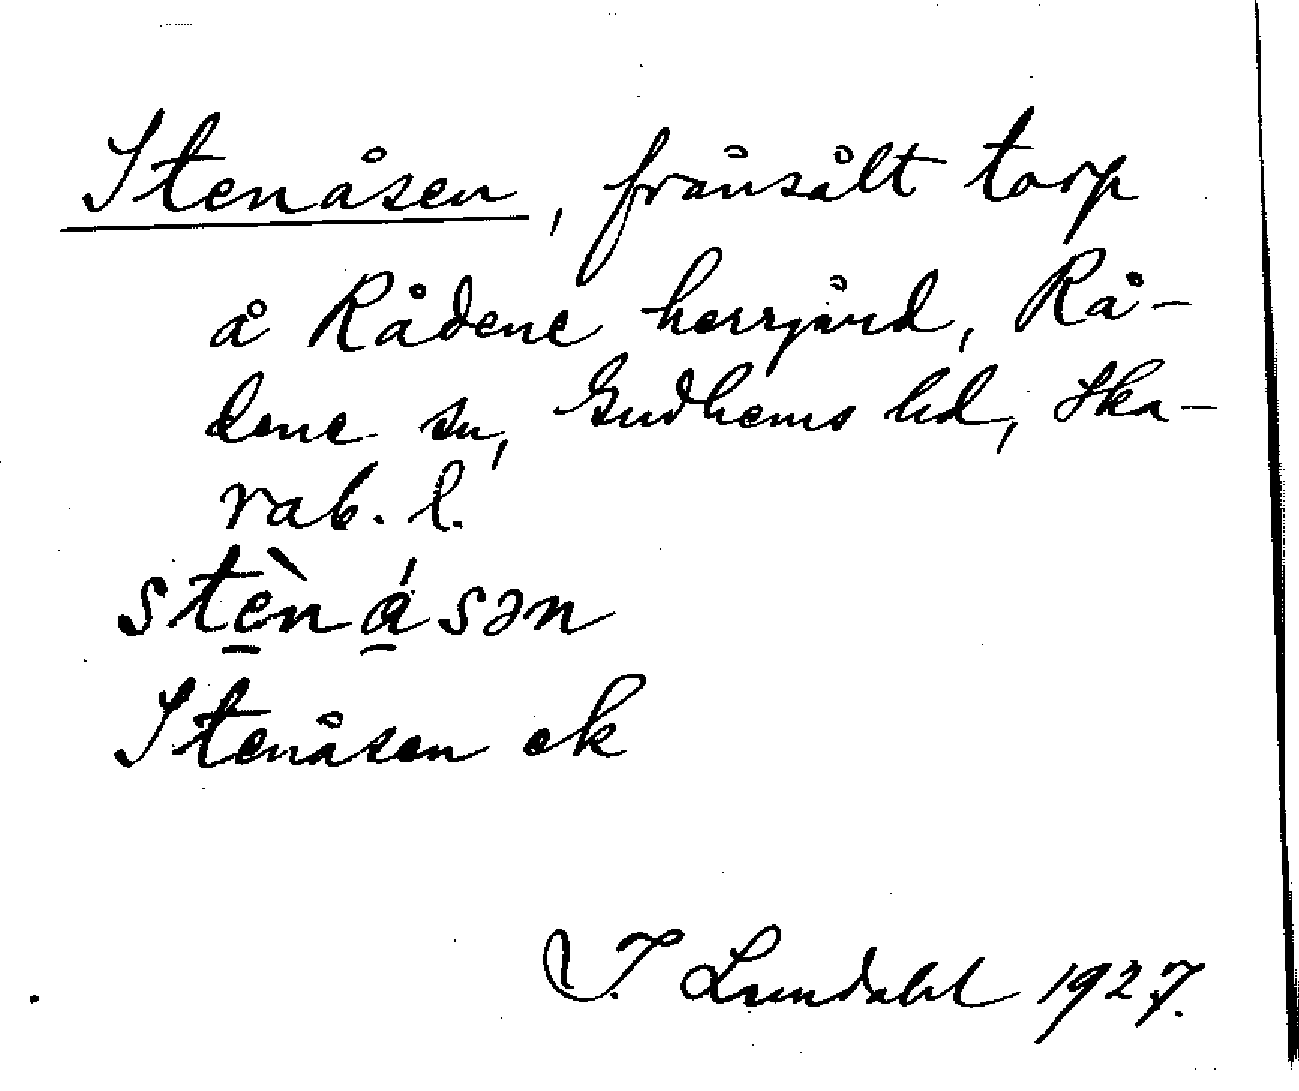 Stenåsen, frånsålt torp
å Rådene herrgård, Rå-
dene sn, Gudhems hd, Ska-
rab. l.
stè̠ná̠sən
Stenåsen ek
I. Lundahl 1927.